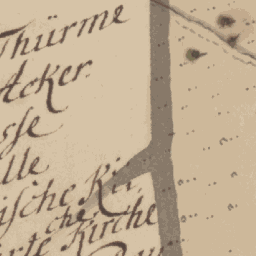 Thürme
Acker.
sse
lle
ische Kir,
che
rte Kirche